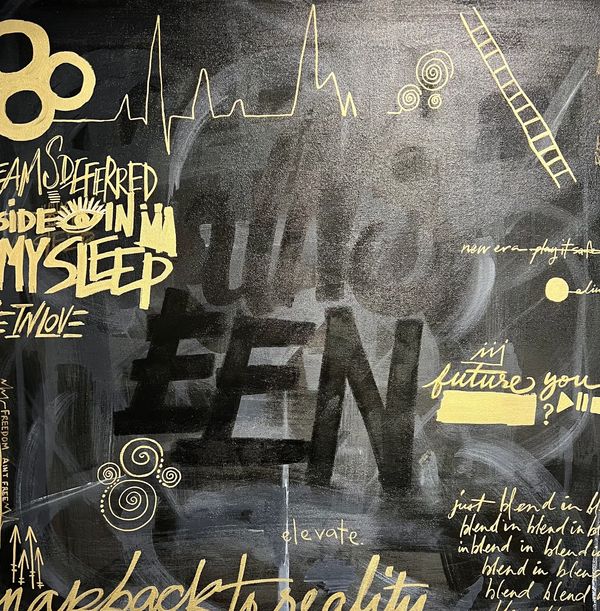 EAMS DEFERRED
SIDE IN
MY SLEEP
E IN LOVE
new era play it safe
alin
future you
?
FREEDOM AIN'T FREE
EEN
elevate.
just blend in bl
blend in blend in b
in blend in blend i
blend in blend
blend blend
napback to reality